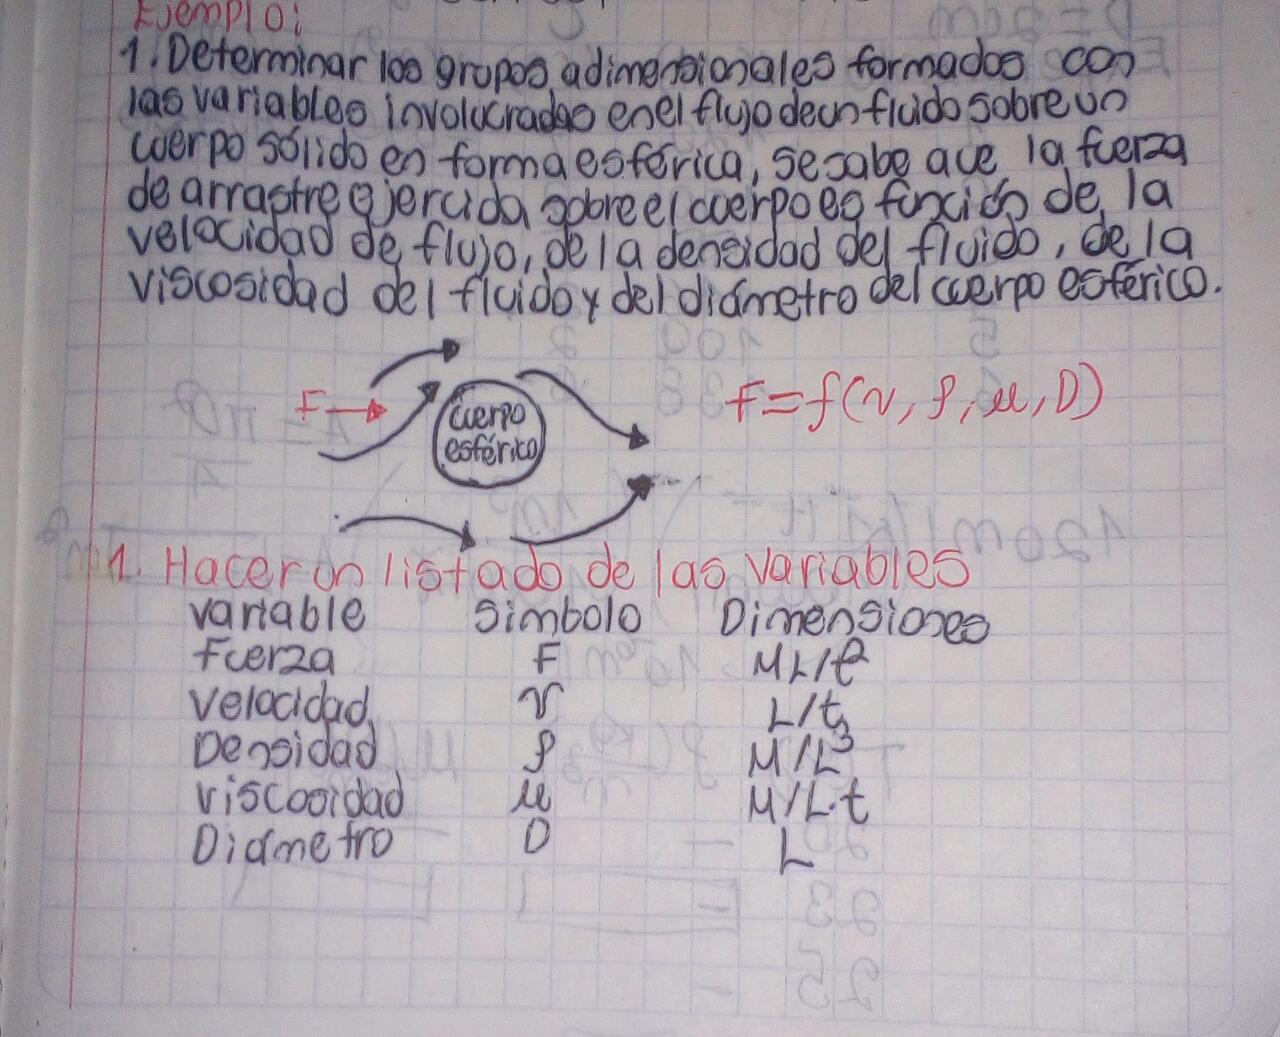 Ejemplo:
1. Determinar los grupos adimensionales formados con
las variables involucradas en el flujo de un fluido sobre un
cuerpo sólido en forma esférica, se sabe que la fuerza
de arrastre ejercida sobre el cuerpo es función de la
velocidad de flujo, de la densidad del fluido, de la
viscosidad del fluido y del diámetro del cuerpo esférico.
F
cuerpo
esférico
F=f(v, ρ, μ, D)
1. Hacer un listado de las variables
variable símbolo Dimensiones
Fuerza F ML/t²
velocidad v L/t
Densidad ρ M/L³
viscosidad μ M/L·t
Diámetro D L